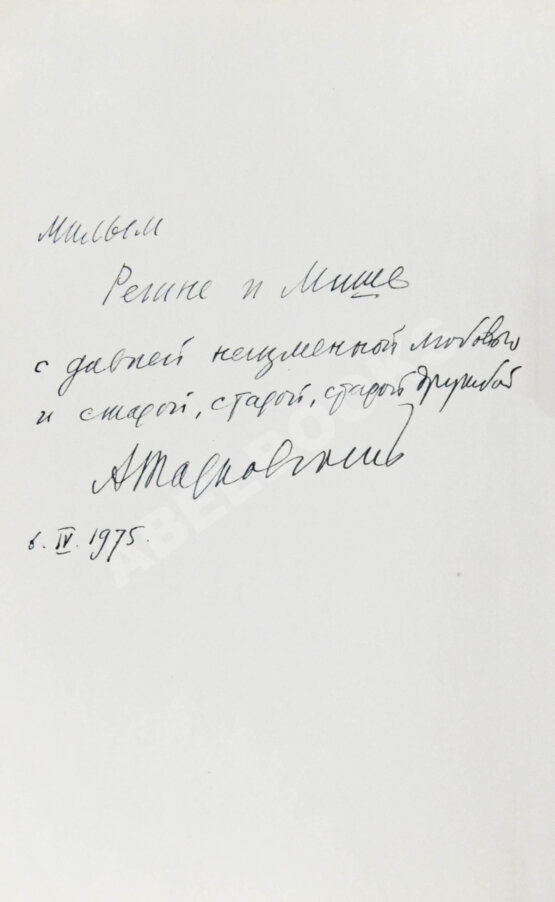 милым
Регине и Мише
с давней неизменной любовью
и старой, старой, старой дружбой
АТарковский
6. IV. 1975.
ABELBOOKS